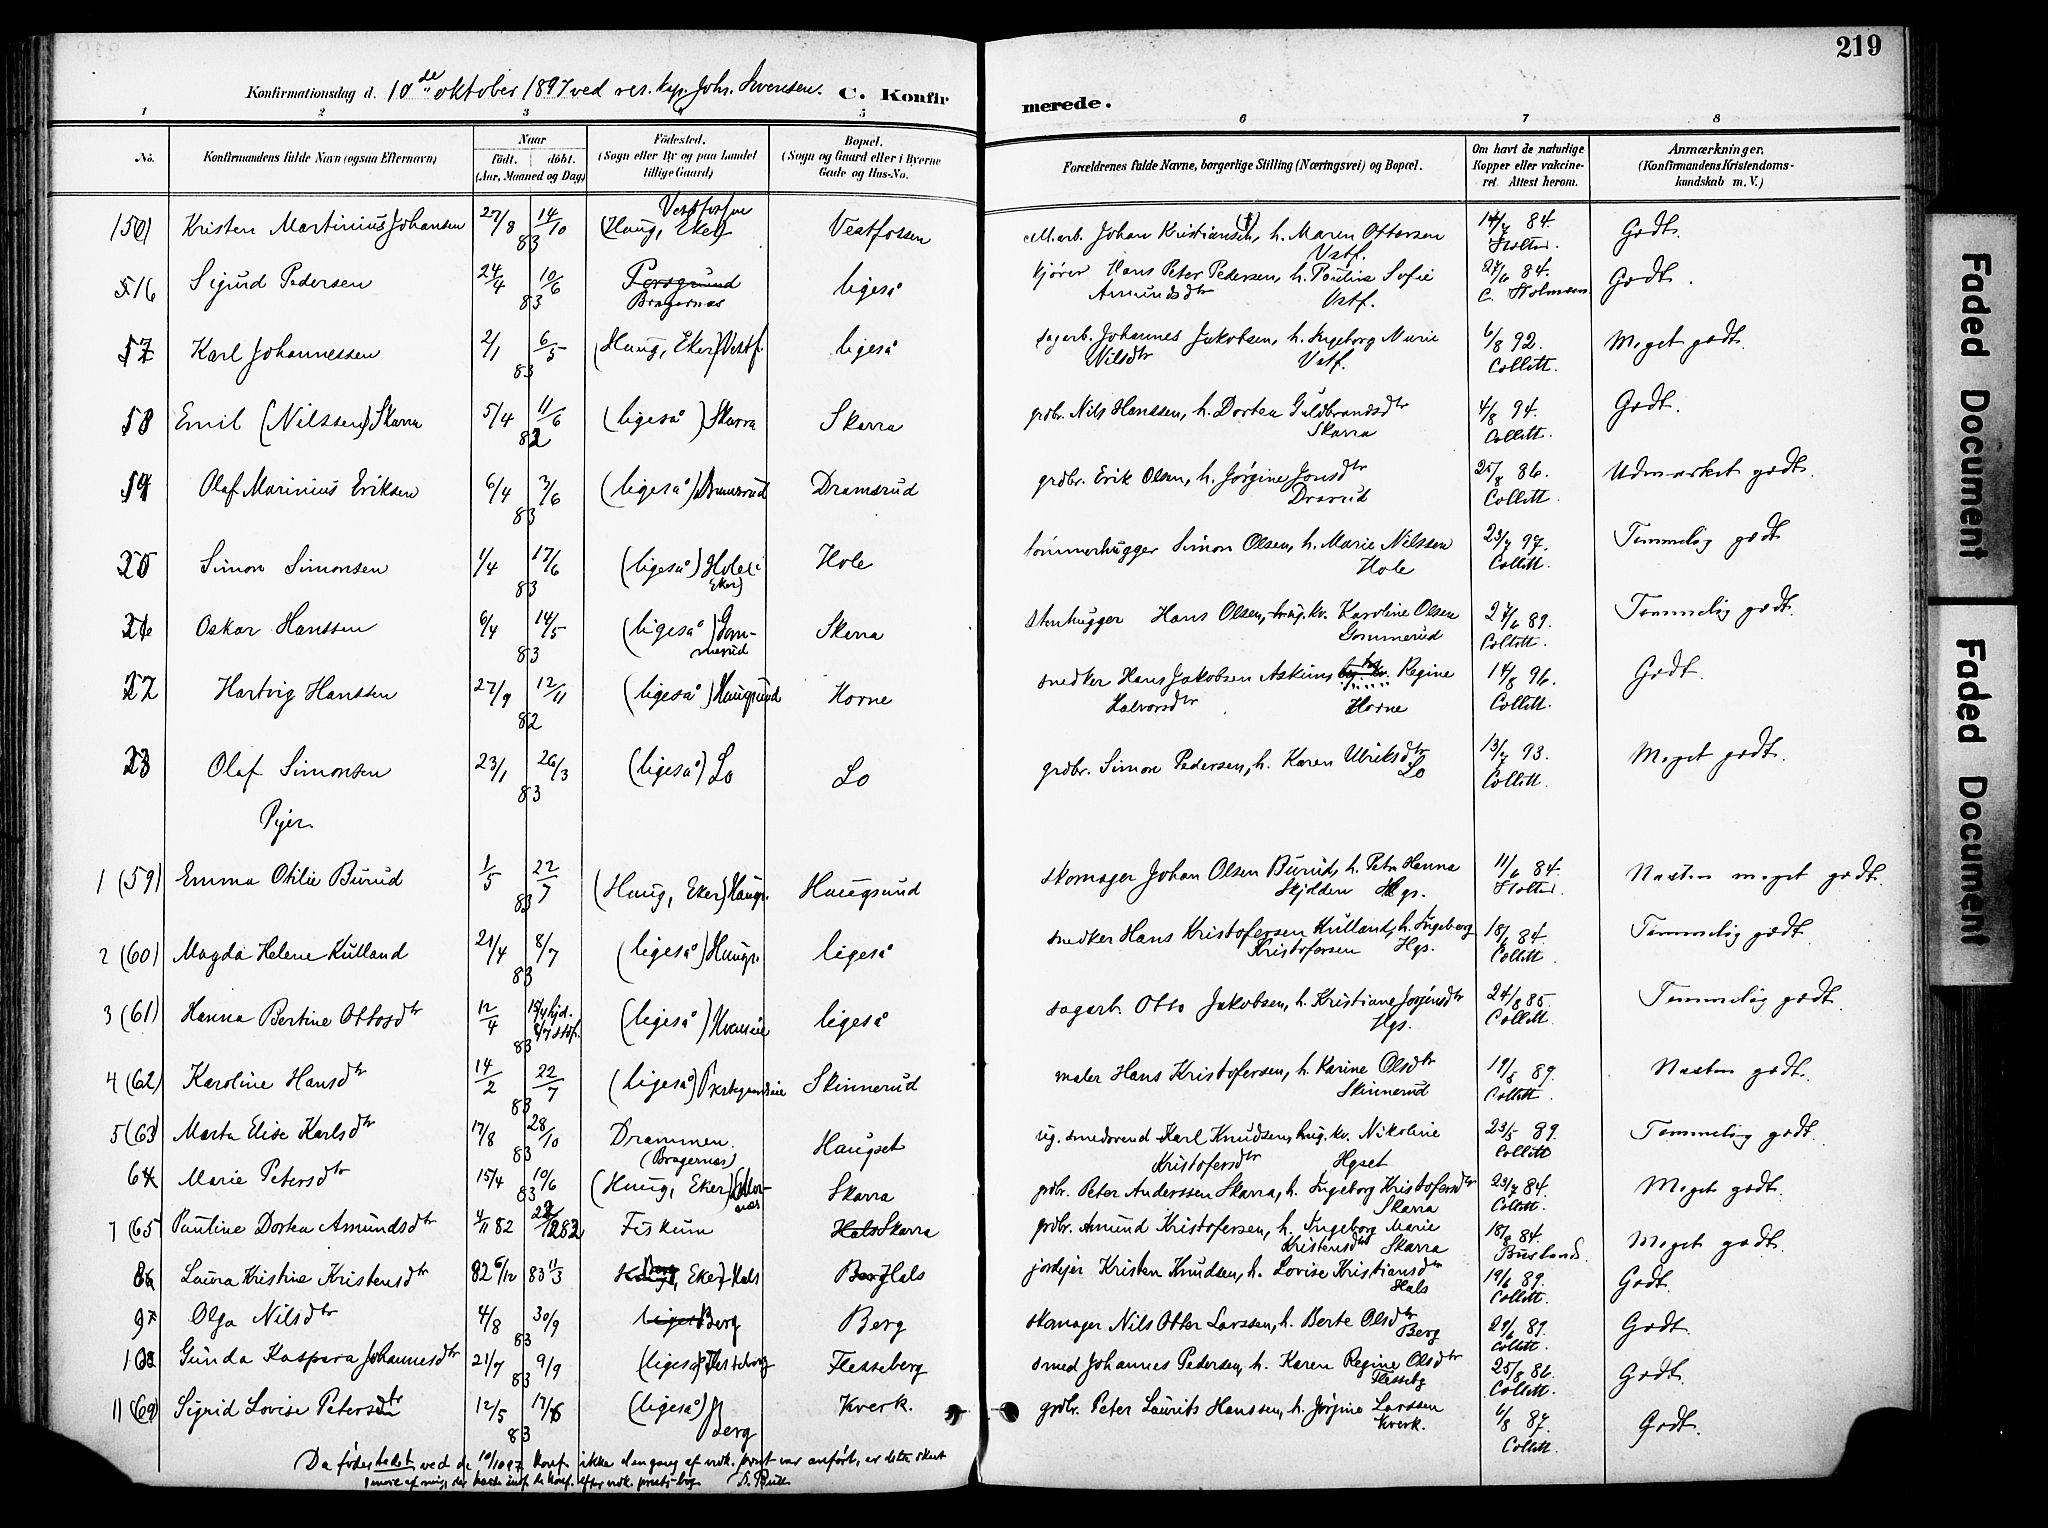 219
Konfirmationsdag d. 10de oktober 1897 ved res. kap. Johs. Svensen. C. Konfirmerede.
1 2 3 4 5 6 7 8
No. Konfirmandens fulde Navn (ogsaa Efternavn) Naar födt. döbt. (Aar, Maaned og Dag) Födested. (Sogn eller By og paa Landet tillige Gaard) Bopæl. (Sogn og Gaard eller i Byerne Gade og Hus-No. Forældrenes fulde Navne, borgerlige Stilling (Næringsvei) og Bopæl. Om havt de naturlige Kopper eller vakcineret. Attest herom. Anmærkninger. (Konfirmandens Kristendomskundskab m. V.)
Kristen Martinius Johansen 27/8 83 14/10 (Haug, Eker) Vestfossen Vestfossen Johan Kristiansen (†), h. Maren Ottersen Vestf. 84. Godt.
16 Sigurd Pedersen 24/4 83 10/6 Bragernæs ligeså kjører Hans Peter Pedersen, h. Pauline Sofie Amundsdtr Vestf. 27/6 84. C. Holmsen Godt.
17 Karl Johannessen 2/1 83 6/5 (Haug, Eker) Vestf. ligeså sagarb. Johannes Jakobsen, h. Ingeborg Marie Nilsdtr Vestf. 6/8 92. Collett. Meget godt.
18 Emil (Nilssen) Skarra 5/4 82 11/6 (ligeså) Skarra Skarra grdbr. Nils Hanssen, h. Dortea Guldbrandsdtr Skarra 4/8 94. Collett. Godt.
19 Olaf Marinius Eriksen 6/4 83 3/6 (ligeså) Dramsrud Dramsrud grdbr. Erik Olsen, h. Jørgine Jonsdtr 25/8 86. Collett. Udmærket godt.
20 Simon Simonsen 1/4 83 17/6 (ligeså) Hole Hole tømmerhugger Simon Olsen, h. Marie Nilssen Hole 23/7 97. Collett. Temmelig godt
21 Oskar Hanssen 6/4 83 14/5 (ligeså) Gommerud Skarra stenhugger Hans Olsen, ug. kv. Karoline Olsen Gommerud 27/6 89. Collett. Temmelig godt.
22 Hartvig Hanssen 27/9 82 12/11 (ligeså) Haugsund Horne snedker Hans Jakobsen Regine Halvorsdtr Horne 14/8 96. Collett. Godt.
23 Olaf Simonsen 23/1 83 26/3 (ligeså) Lo Lo grdbr. Simon Pedersen, h. Karen Ulriksdtr Lo 13/7 93. Collett. Meget godt.
Piger.
1 (59) Emma Otilie Burud 1/5 83 22/7 (Haug, Eker) Haugs. Haugsund skomager Johan Olsen Burud, h. Petra Hanna Skjølden Hgs. 11/6 84. Næsten meget godt.
2 (60) Magda Helene Kulland 21/4 83 8/7 (ligeså) Haugs. ligeså snedker Hans Kristofersen Kulland, h. Ingeborg Kristofersen Hgs. 18/6 84. Collett. Temmelig godt
3 (61) Hanna Bertine Ottosdtr 12/4 83 hjd. 8/7 stdf. (ligeså) ligeså sagarb. Otto Jakobsen, h. Kristiane Hgs. 24/8 85. Collett. Temmelig godt
4 (62) Karoline Hansdtr 14/2 83 22/7 (ligeså) Skinnerud maler Hans Kristofersen, h. Karine Olsdtr Skinnerud 19/8 89. Collett. Næsten godt.
5 (63) Marta Elise Karlsdtr 17/8 83 28/10 Drammen. (Bragernæs) Haugset ug. smedsvend Karl Knudsen, ug. kv. Nikoline Kristofersdtr Hgset 23/5 89. Collett Temmelig godt.
64 Marie Petersdtr 15/4 83 10/6 (Haug, Eker) Skarra grdbr. Peter Anderssen Skarra, h. Ingeborg Kristofersdtr Skarra 23/7 84. Collett. Meget godt.
7 (65) Pauline Dortea Amundsdtr 4/11 82 Fiskum Skarra grdbr. Amund Kristofersen, h. Ingeborg Marie Kristensdtr Skarra 18/8 84. Meget godt.
8 Laura Kristine Kristensdtr 82 6/12 83 11/3 Berg, Eker) Hals Hals jordejer Kristen Knudsen, h. Lovise Kristiansdtr Hals 19/6 89. Collett. Godt.
9 Olga Nilsdtr 4/8 83 30/9 Berg Berg skomager Nils Otter Larssen, h. Berte Olsdtr Berg 29/6 89. Collett. Godt.
10 Gunda Kaspara Johannesdtr 21/7 83 9/9 (ligeså) Flesseberg Flesseberg smed Johannes Pedersen, h. Karen Regine Olsdtr Flessebg 25/8 86. Collett. Godt.
11 (69) Sigrid Lovise Petersdtr 12/5 83 17/6 (ligeså) Berg Kverk. grdbr. Peter Laurits Hanssen, h. Jørgine Larssen Kverk. 6/8 87. Collett. Godt.
Da fødestedet ved de 10/10 97 konf. ikke dengang af vedk. prest var anført, er dette sket